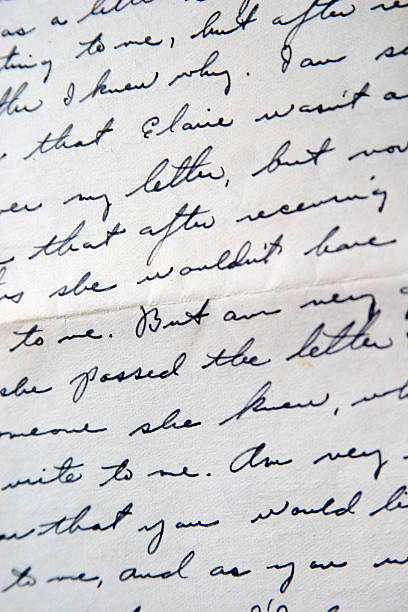 as a letter
ting to me, but after re
tter I knew why. I am so
that Elaine wasn't a
over my letter, but now
that after receiving
this she wouldn't have
to me. But am very g
she passed the letter
omeone she knew, wh
write to me. Am very
ow that you would li
to me, and as you